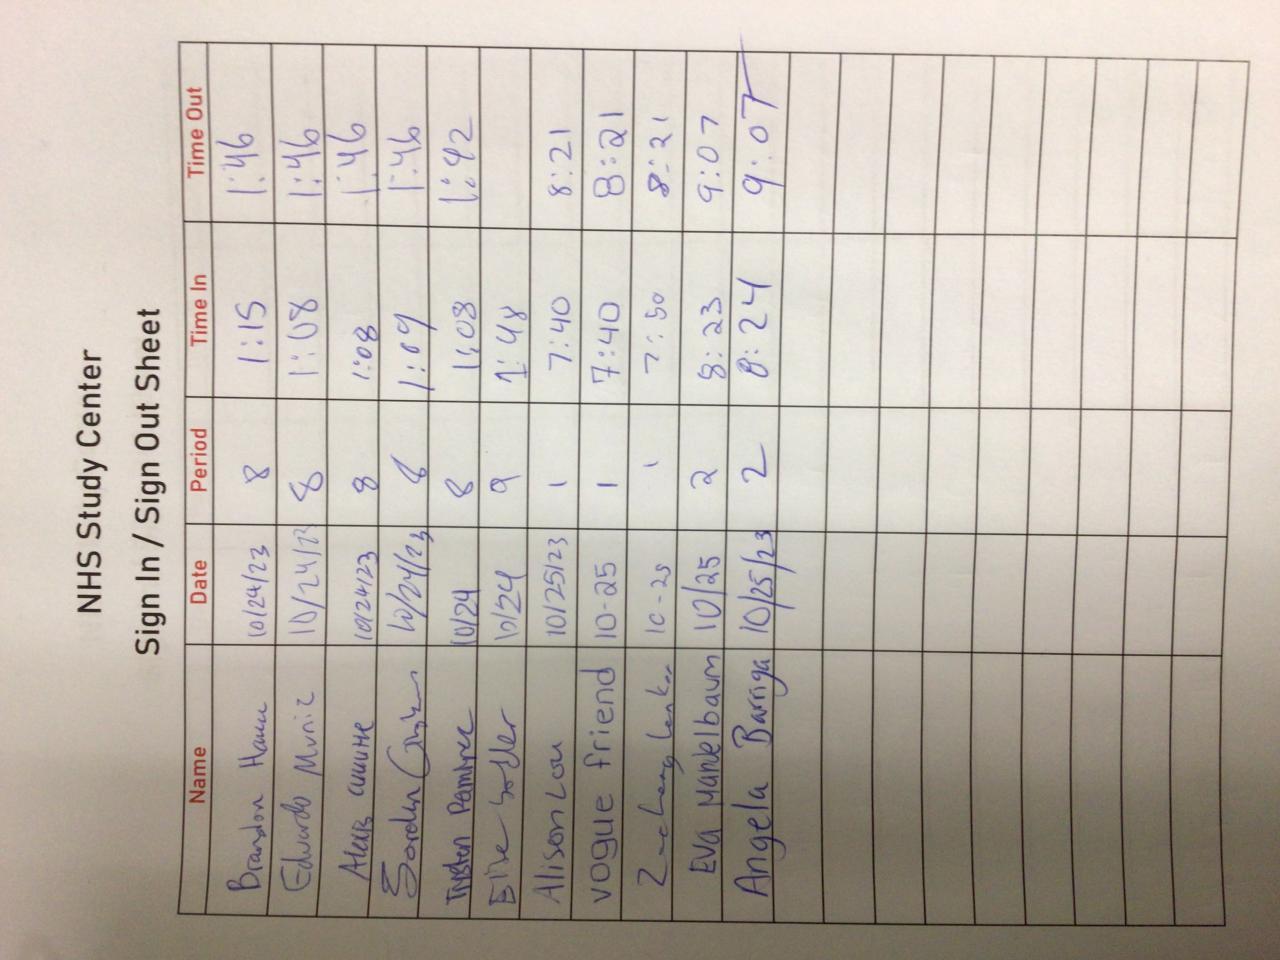 NHS Study Center
Sign In / Sign Out Sheet
Name Date Period Time In Time Out
Brandon 10/24/23 8 1:15 1:46
Eduardo Muniz 10/24/23 8 1:08 1:46
10/24/23 8 1:08 1:46
10/24/23 8 1:09 1:46
10/24 8 1:08 1:42
10/24 9 1:48
Alison Lou 10/25/23 1 7:40 8:21
vogue friend 10-25 1 7:40 8:21
10-25 1 7:50 8:21
Eva Mankelbaum 10/25 2 8:23 9:07
Angela Barriga 10/25/23 2 8:24 9:07